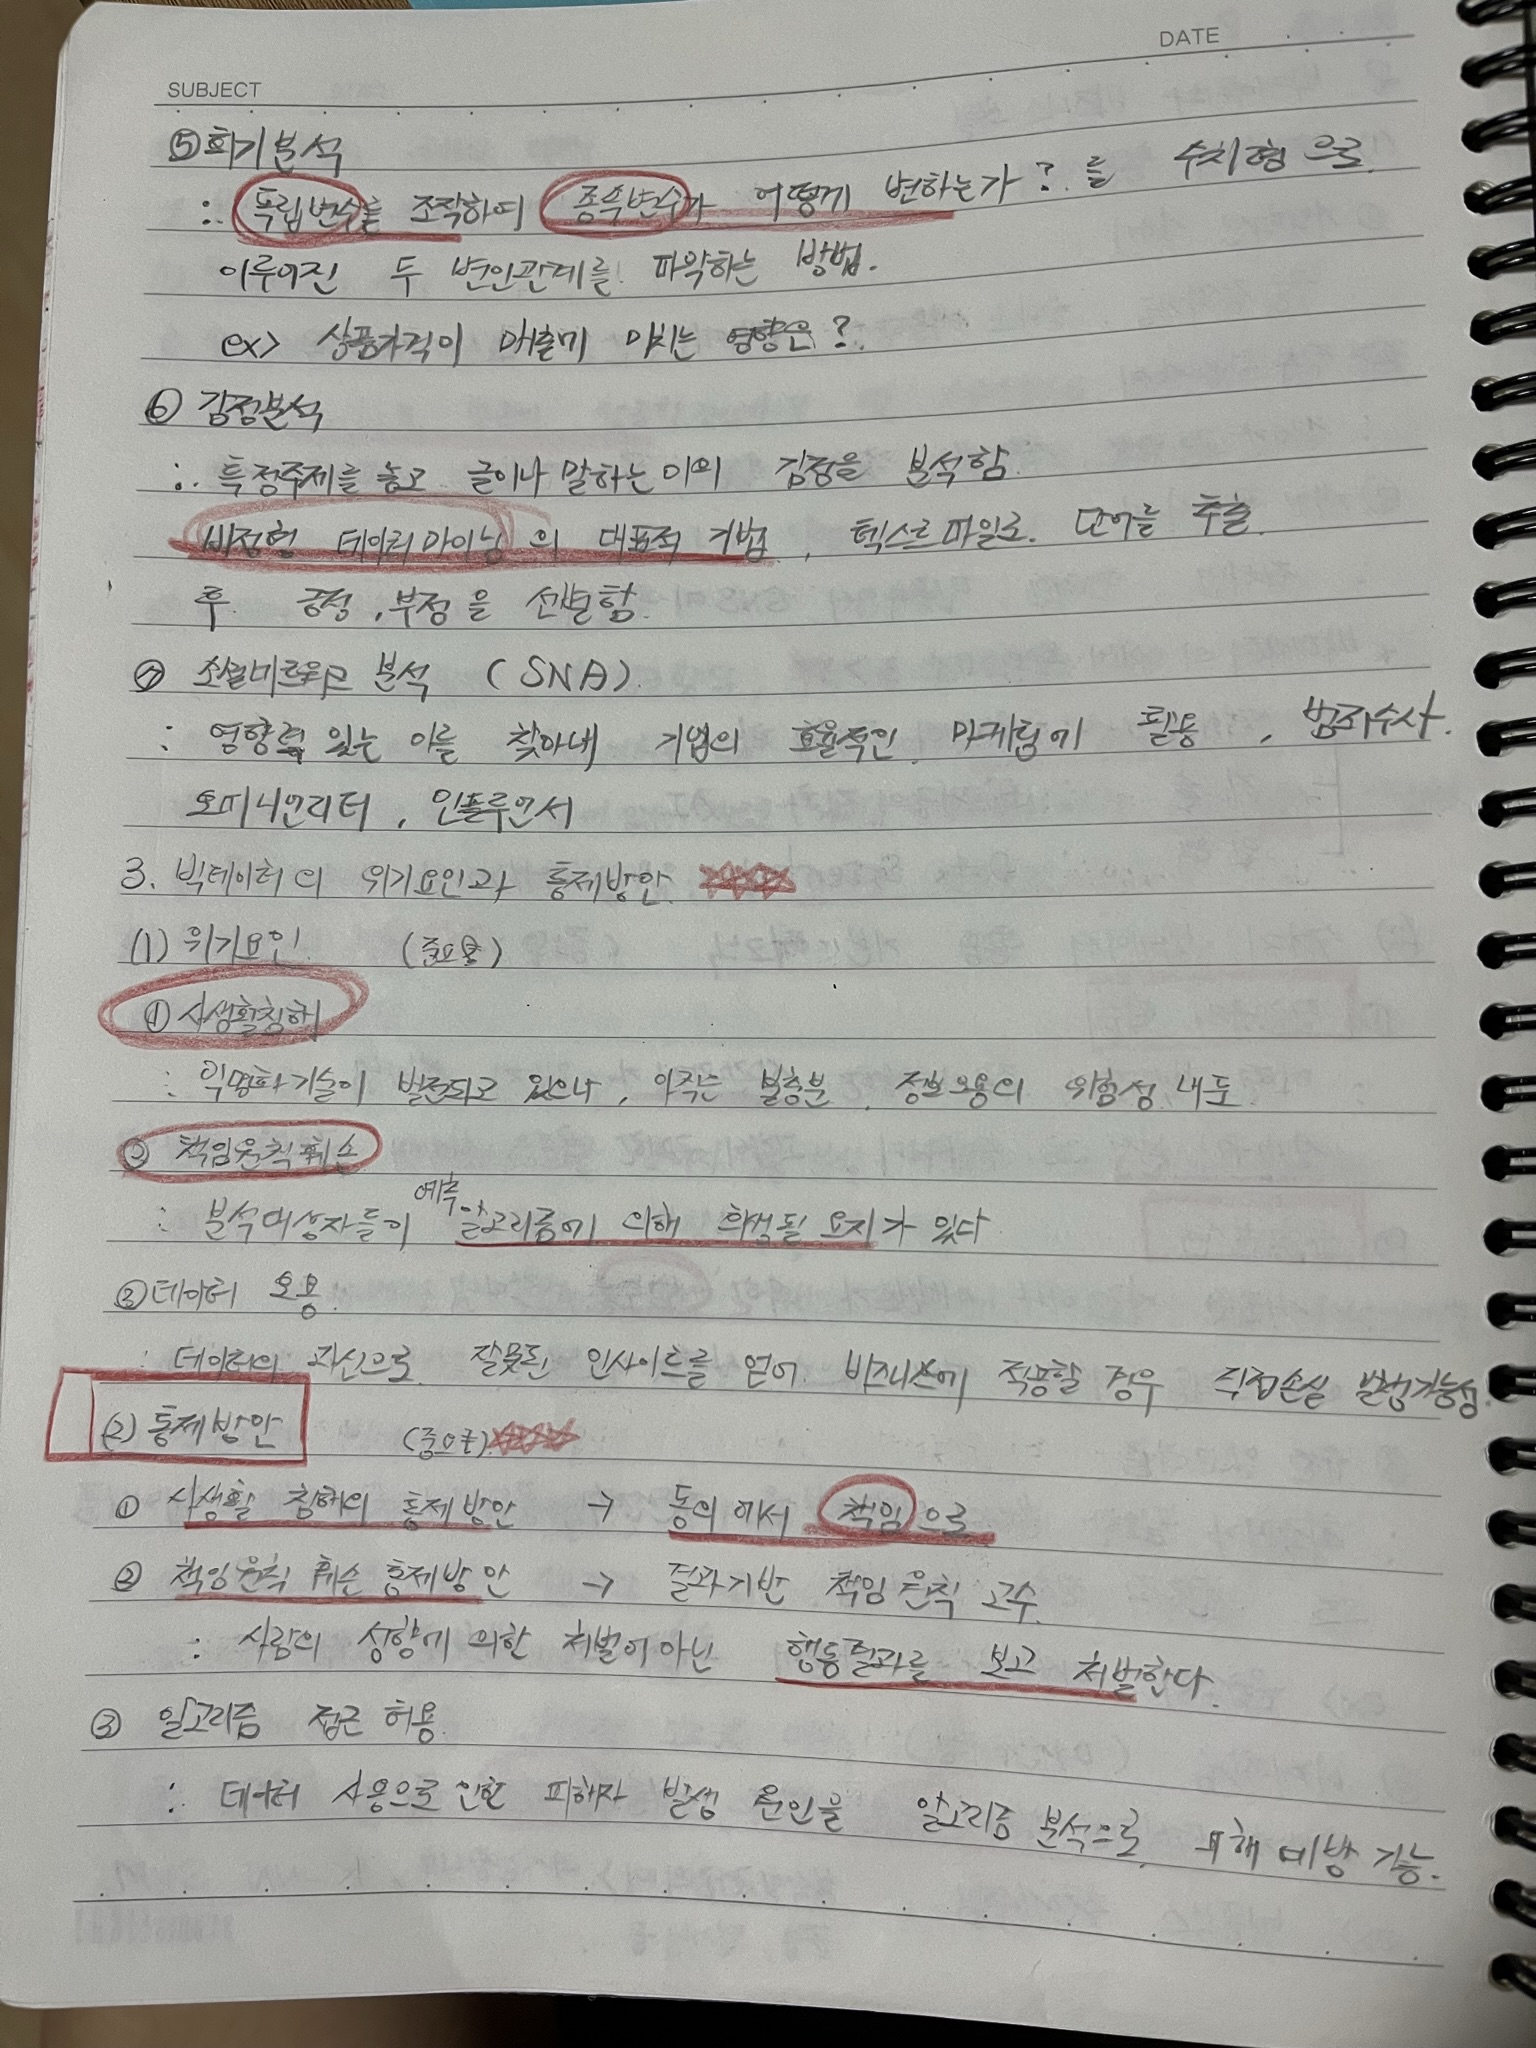 DATE
SUBJECT
⑤ 회기분석
: 독립변수를 조작하여 종속변수가 어떻게 변하는가? 를 수치형으로
이루어진 두 변인관계를 파악하는 방법.
ex> 상품가격이 매출에 미치는 영향은?
⑥ 감정분석
: 특정주제를 놓고 글이나 말하는이의 감정을 분석함.
비정형 데이터마이닝의 대표적 기법, 텍스트파일로 단어를 추출
후 긍정, 부정을 선별함.
⑦ 소셜네트워크 분석 (SNA)
: 영향력 있는 이를 찾아내 기업의 효율적인 마케팅에 활용, 범죄수사.
오피니언리더, 인플루언서
3. 빅데이터의 위기요인과 통제방안
(1) 위기요인 (중요)
① 사생활침해
: 익명화기술이 발전되고 있으나, 아직은 불충분, 정보오용의 위험성 내포
② 책임원칙훼손
: 분석대상자들이 예측 알고리즘에 의해 희생될 요지가 있다
③ 데이터 오용
: 데이터의 과신으로 잘못된 인사이트를 얻어 비즈니스에 적용할 경우 직접손실 발생가능성.
(2) 통제방안 (중요)
① 사생활 침해의 통제방안 → 동의에서 책임으로
② 책임원칙 훼손 통제방안 → 결과기반 책임원칙 고수.
: 사람의 성향에 의한 처벌이 아닌 행동결과를 보고 처벌한다.
③ 알고리즘 접근 허용.
: 데이터 사용으로 인한 피해자 발생 원인을 알고리즘 분석으로 피해예방 가능.